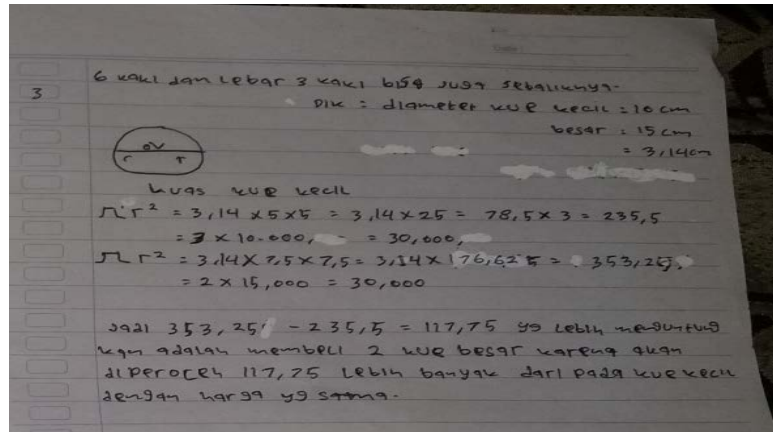 6 kaki dan lebar 3 kaki bisa juga sebaliknya.
3
Dik : diameter kue kecil = 10 cm
besar : 15 cm
= 3,14cm
r r
Luas kue kecil
πr² = 3,14 x 5 x 5 = 3,14 x 25 = 78,5 x 3 = 235,5
= 3 x 10.000, = 30,000,
πr² = 3,14 x 7,5 x 7,5 = 3,14 x 176,625 = 353,25,
= 2 x 15,000 = 30,000
Jadi 353,25 - 235,5 = 117,75 yg lebih menguntung
kan adalah membeli 2 kue besar karena akan
diperoleh 117,75 lebih banyak dari pada kue kecil
dengan harga yg sama.